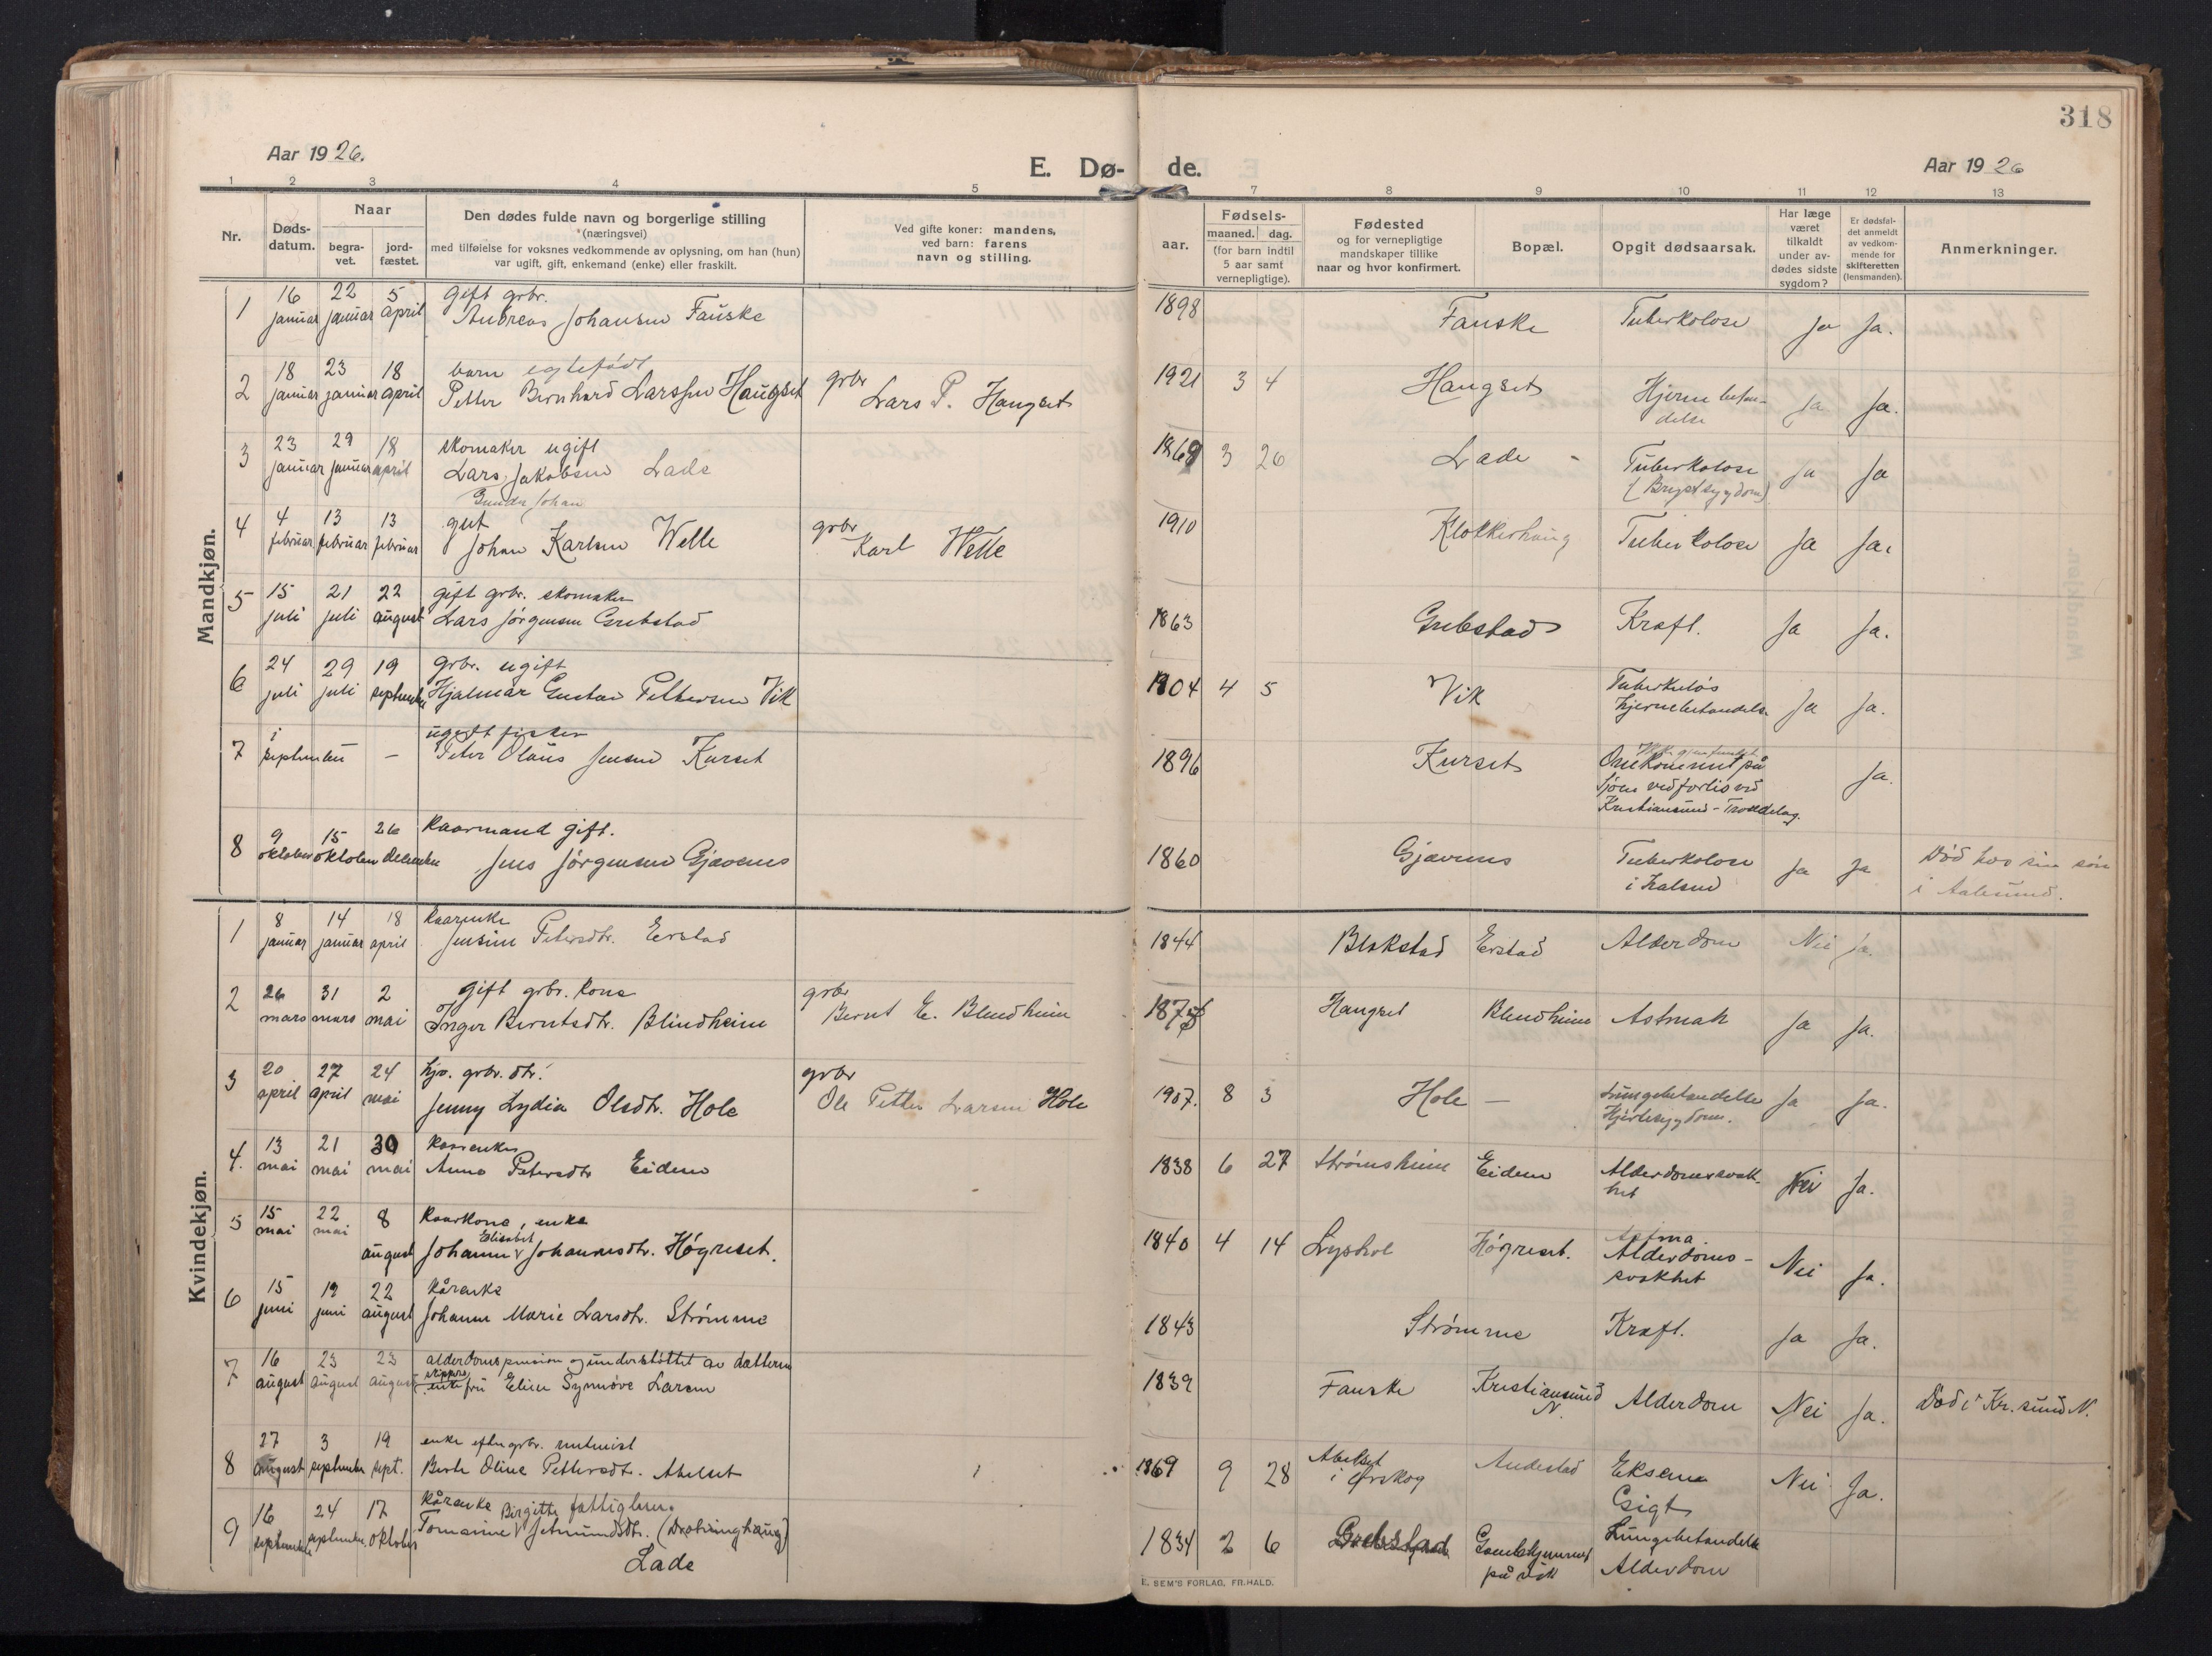 318
Aar 1926.
E. Dø- de.
Aar 1926
1 2 3 4 5 7 8 9 10 11 12 13
Nr.
Døds-
datum.
Naar
begra-
vet.
jord-
fæstet.
Den dødes fulde navn og borgerlige stilling
(næringsvei)
med tilføielse for voksnes vedkommende av oplysning, om han (hun)
var ugift, gift, enkemand (enke) eller fraskilt.
Ved gifte koner: mandens,
ved barn: farens
navn og stilling.
aar.
Fødsels-
maaned. dag.
(for barn indtil
5 aar samt
vernepligtige).
Fødested
og for vernepligtige
mandskaper tillike
naar og hvor konfirmert.
Bopæl.
Opgit dødsaarsak.
Har læge
været
tilkaldt
under av-
dødes sidste
sygdom?
Er dødsfal-
det anmeldt
av vedkom-
mende for
skifteretten
(lensmanden).
Anmerkninger.
Mandkjøn.
1 16 22 5 Gift grbr. 1898
januar januar april Andreas Johansen Fauske Fauske Tuberkolose Ja Ja.
2 18 23 18 barn egtefødt grbr 1921 3 4
januar januar april Petter Bernhard Larssen Haugset Lars P. Haugset Haugset Hjernebeten-
delse Ja Ja.
3 23 29 18 skomaker ugift 1869 3 26
januar januar april Lars Jakobsen Lade Lade - Tuberkolose
(Brystsygdom) Ja Ja
Gunder Johan
4 4 13 13 gut grbr 1910
februar februar februar Johan Karlsen Welle Karl Welle Klokkerhaug Tuberkolose Ja Ja.
5 15 21 22 gift grbr. skomaker 1863
juli juli august Lars Jørgensen Grebstad Grebstad Kræft. Ja Ja.
6 24 29 19 Grbr. ugift 1904 4 5
juli juli september Hjalmar Gustav Pettersen Vik Vik Tuberkuløs
hjernebetændelse Ja Ja.
7 i ugift fisker 1896
september - Peter Olaus Jensen Kurset Kurset
Omkommet på
sjøen ved forlis ved
Kristiansund - Trondelag. Ja.
8 9 15 26 Kaarmand gift. 1860
oktober oktober desember Jens Jørgensen Gjævenes Gjævenes Tuberkolose
i halsen Ja Ja Død hos sin søn
i Aalesund.
Kvindekjøn.
1 8 14 18 Kaarenke 1844
januar januar april Jensine Petersdtr. Erstad Blakstad Erstad Alderdom Nei Ja.
2 26 31 2 Gift grbr. kone grbr 187
mars mars mai Inger Berntsdtr. Blindheim Bernt E. Blindheim Haugset Blindheim Astmah Ja Ja.
3 20 27 24 hjv. grbr. dtr. grbr 1907. 8 3
april april mai Jenny Lydia Olsdtr. Hole Ole Petter Larsen Hole Hole - Lungebetændelse
Hjertesygdom. Ja Ja.
4. 13 21 30 Kaarenke 1838 6 27
mai mai mai Anna Petersdtr Eidem Strømsheim Eidem Alderdomssvak-
het Nei Ja.
5 15 22 8 Kaarkone, enke 1840 4 14
Elisabet
mai mai august Johanne v Johannesdtr. Høgreset. Lyshol Høgreset. Astma
Alderdoms-
svakhet Nei Ja.
6 15 19 22 Kårenke 1843
juni juni august Johanne Marie Larsdtr. Strømme Strømme Kræft. Ja Ja.
7 16 23 23 alderdomspension og understøttet av datteren 1839
skippers
august august august enkefru Eline Synnøve Larsen Fauske Kristiansund
N. Alderdom Nei Ja. Død i Kr.sund N.
8 27 3 19 enke efter grbr. 1869 9 28
august september sept. Berte Oline Pettersdtr. Abelset Abelset
i Ørskog Andestad Eksem
Gigt Nei Ja.
9 16 24 17 Kårenke Birgitte fattiglem. 1834 2 6
september september oktober Tomasine v Jetmundsdtr.
Lade
Grebstad Gamlehjemmet
på Vik Lungebetændelse
Alderdom
E. SEM'S FORLAG, FR.HALD.